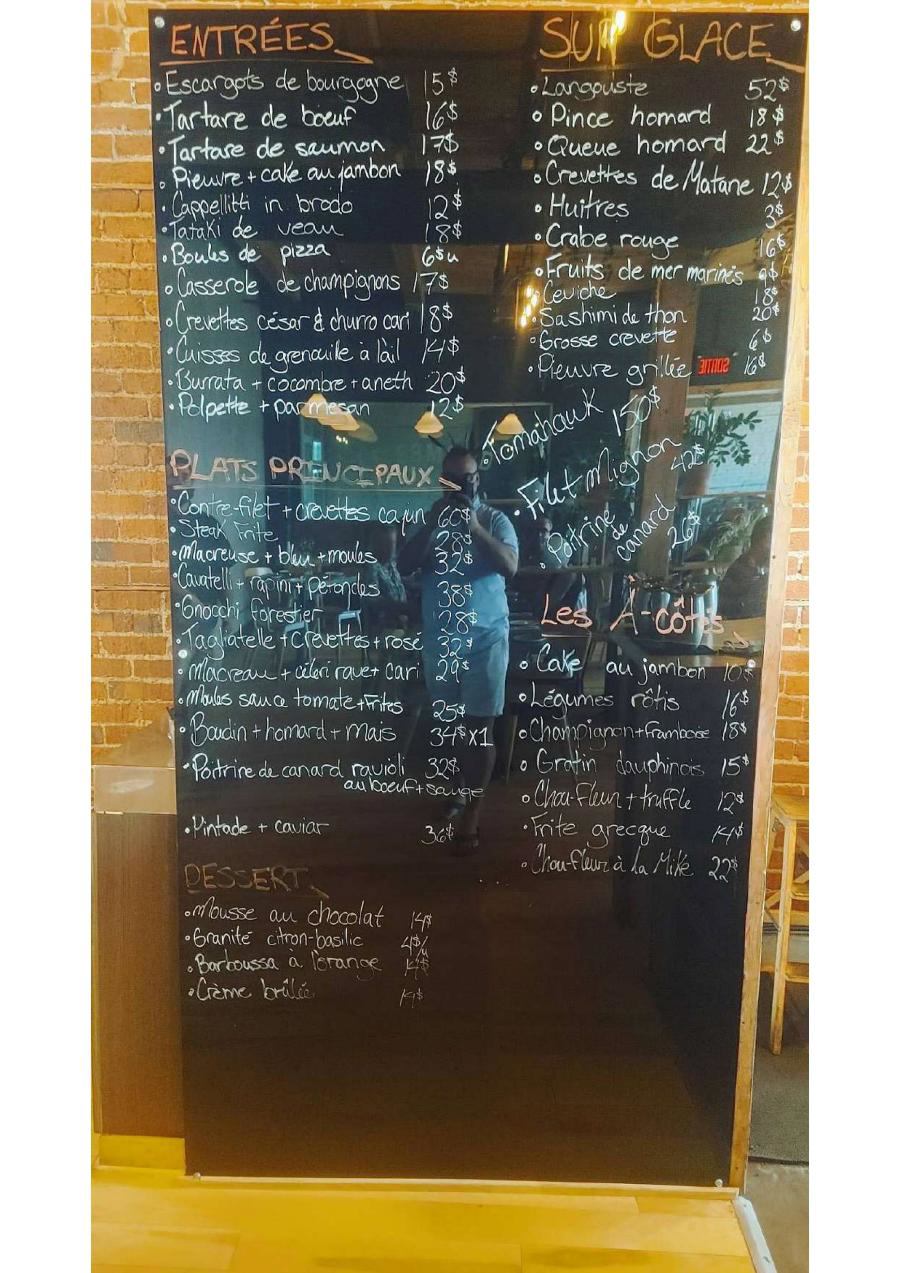 ENTRÉES
• Escargots de bourgogne 15$
• Tartare de boeuf 16$
• Tartare de saumon 17$
• Pieuvre + cake au jambon 18$
• Cappellitti in brodo 12$
• Tataki de veau 18$
• Boules de pizza 6$u
• Casserole de champignons 17$
• Crevettes césar & churro cari 18$
• Cuisses de grenouille à l'ail 14$
• Burrata + cocombre + aneth 20$
• Polpette + parmesan 12$
PLATS PRINCIPAUX
• Contre-filet + crevettes cajun 60$
• Steak Frite 28$
• Macreuse + bleu + moules 32$
• Cavatelli + rapini + pétoncles 38$
• Gnocchi forestier 28$
• Tagliatelle + crevettes + rosé 32$
• Macreau + céleri rave + cari 29$
• Moules sauce tomate + frites 25$
• Boudin + homard + mais 34$ x1
• Poitrine de canard ravioli 32$
au boeuf + sauge
• Pintade + caviar 36$
DESSERT
• Mousse au chocolat 14$
• Granité citron-basilic 4$/u
• Barboussa à l'orange 14$
• Crème brûlée 14$
SUR GLACE
• Langouste 52$
• Pince homard 18$
• Queue homard 22$
• Crevettes de Matane 12$
• Huitres 3$
• Crabe rouge 16$
• Fruits de mer marinés 9$
• Ceviche 18$
• Sashimi de thon 20$
• Grosse crevette 6$
• Pieuvre grillée 16$
SORTIE
• Tomahawk 150$
• Filet Mignon 42$
• Poitrine de canard 26$
Les À-côtés
• Cake au jambon 10$
• Légumes rôtis 16$
• Champignon + framboise 18$
• Gratin dauphinois 15$
• Chou-fleur + truffle 12$
• Frite grecque 14$
• Chou-fleur à la Mike 22$